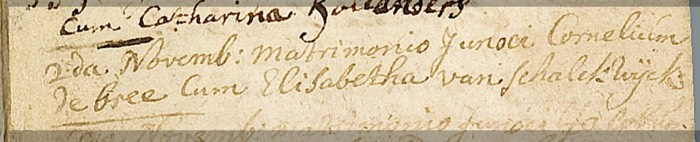 Cum Catharina Hollanders
2da Novemb: matrimonio Junxi Cornelium
de bree Cum Elisabetha van Schalckwijck
Novemb: matrimonio Junxi